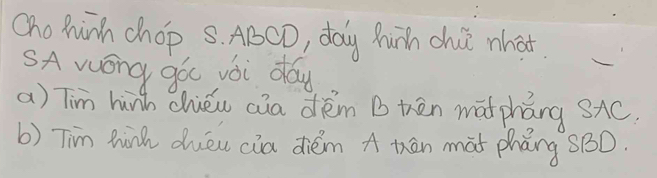 Cho hình chóp S.ABCD, đáy hình chữ nhật.
SA vuông góc với đáy
a) Tìm hình chiếu của điểm B trên mặt phẳng SAC.
b) Tìm hình chiếu của điểm A trên mặt phẳng SBD.